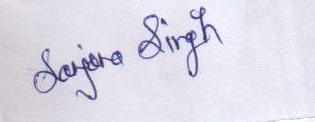 Sanjana Singh